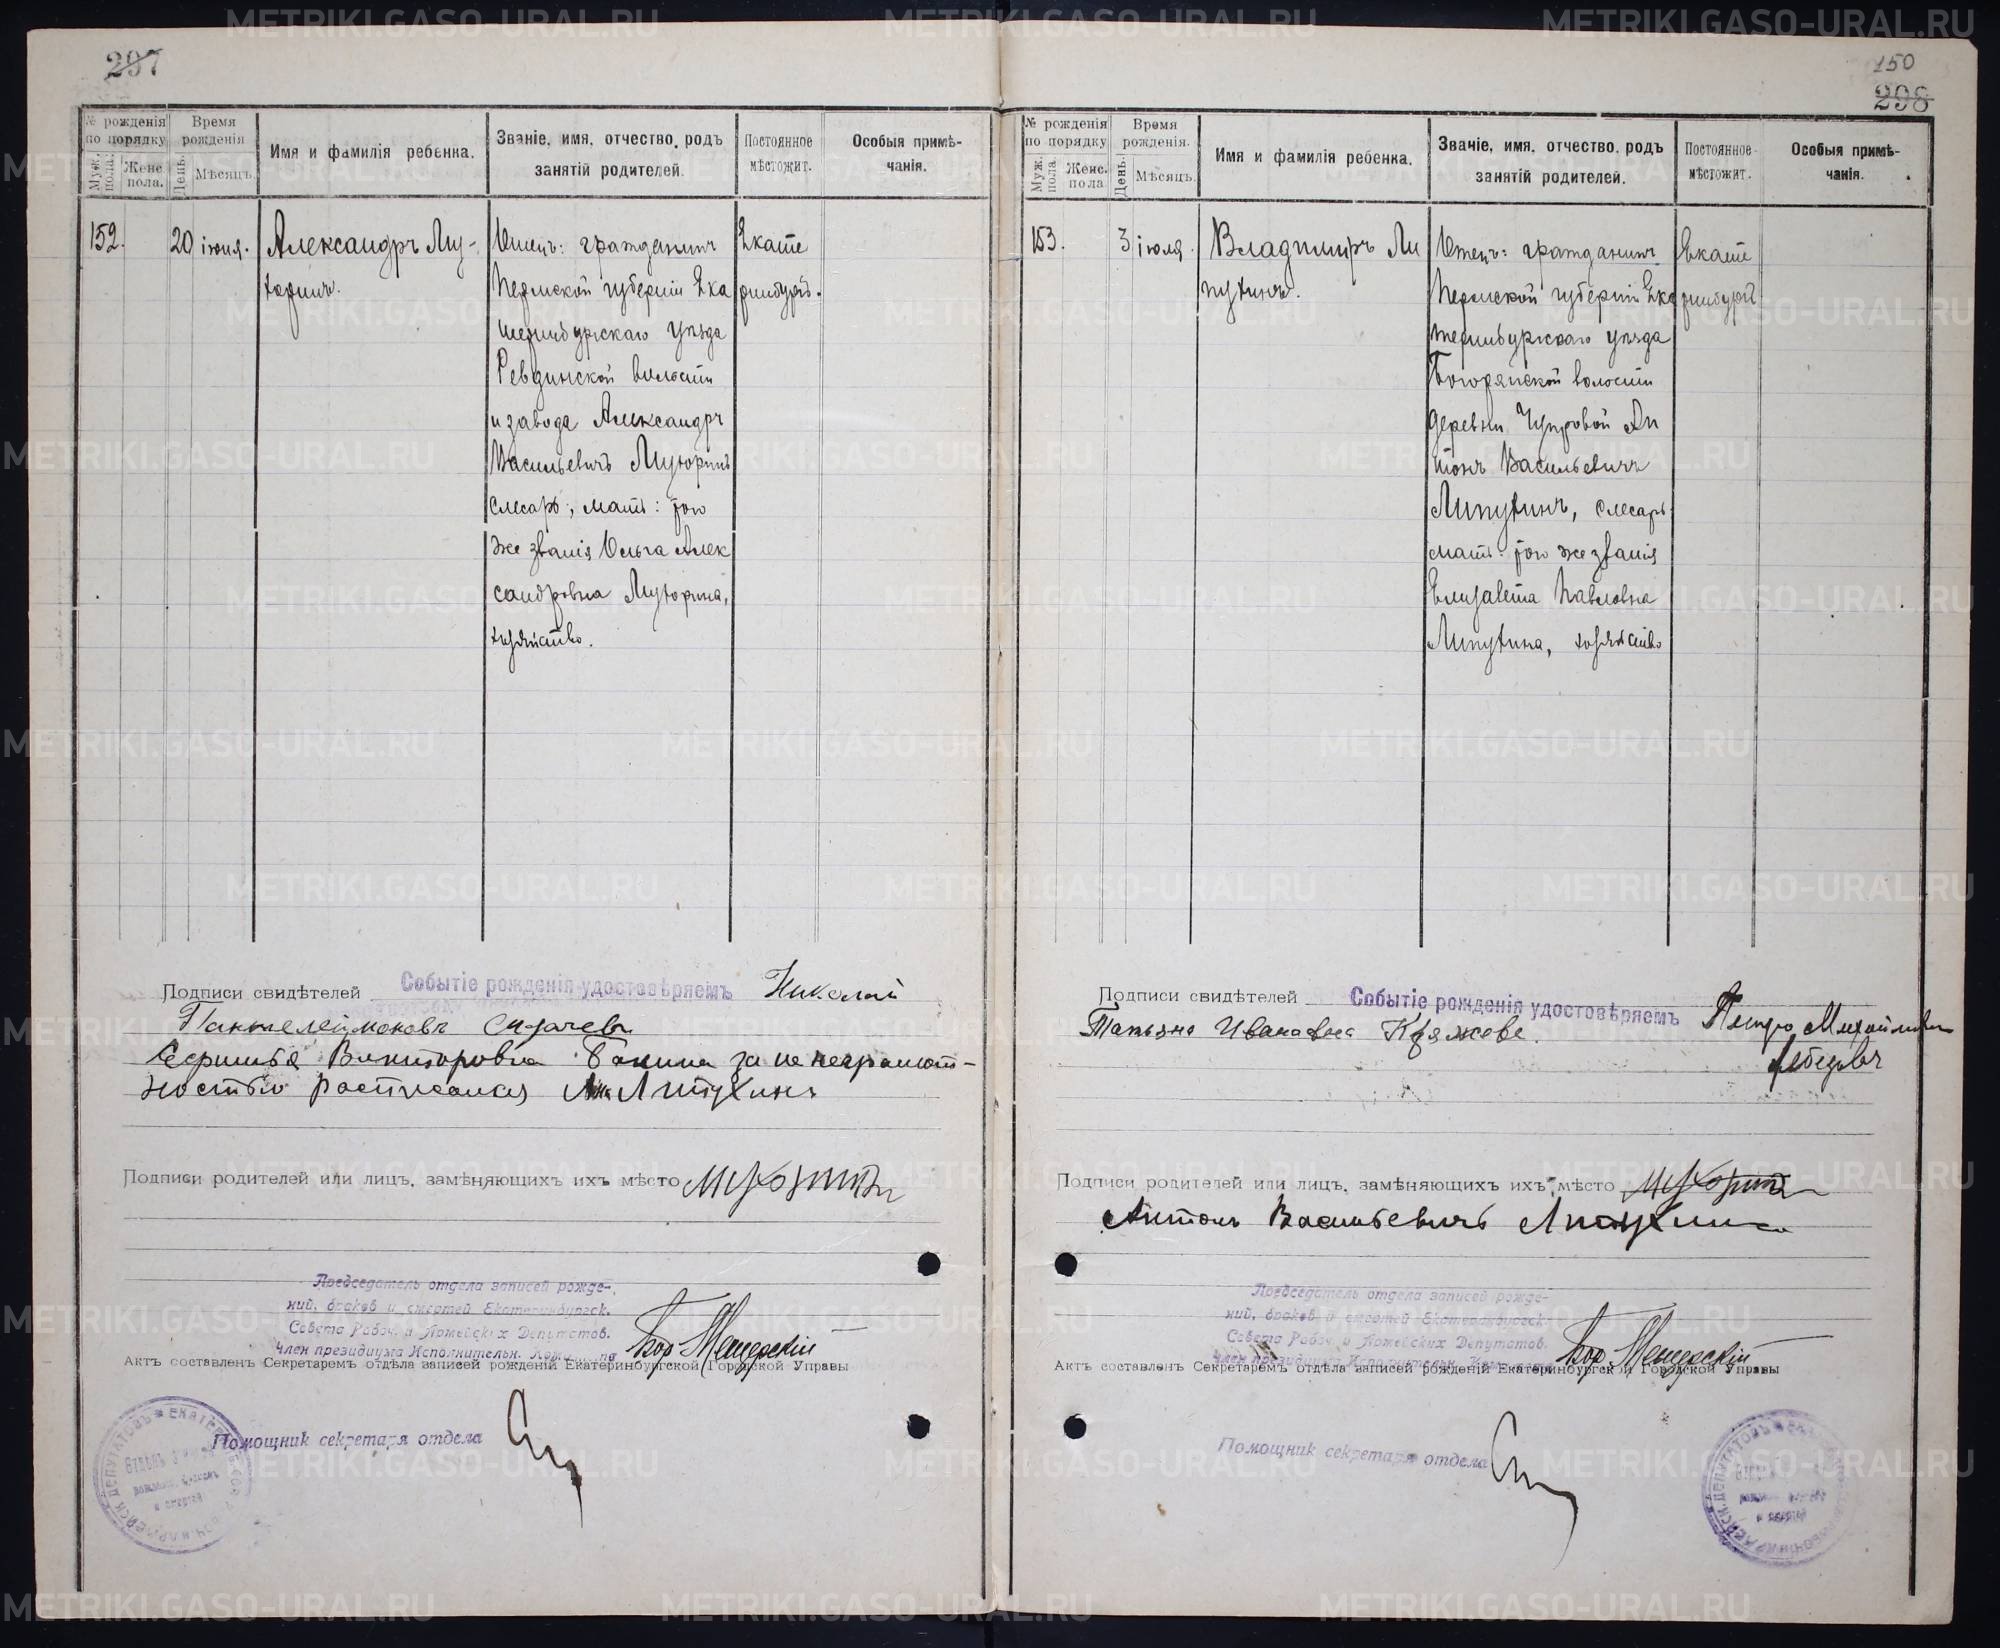 297
№ рожденія по порядку
Муж. пола.
Женс. пола.
Время рожденія
День.
Мѣсяцъ.
Имя и фамилія ребенка.
Званіе, имя, отчество, родъ
занятій родителей.
Постоянное
мѣстожит.
Особыя примѣ-
чанія.
152.
20 іюня.
Александръ Му-
хоринъ.
Отецъ: гражданинъ
Пермской губерніи Ека
теринбургскаго уѣзда
Ревдинской волости
и завода Александръ
Васильевичъ Мухоринъ
слесарь; мать: того
же званія Ольга Алек
сандровна Мухорина,
хозяйство.
Екате
ринбургъ.
Подписи свидѣтелей
Событіе рожденія удостовѣряемъ
Николай
Викторовна
ностью
Подписи родителей или лицъ, замѣняющихъ ихъ мѣсто
Предсѣдатель отдела записей рожде-
ний, браков и смертей Екатеринбургск.
Совета Рабоч. и Армейских Депутатов.
Член президиума Исполнительн.
Мещерскій
Актъ составленъ Секретаремъ отдѣла записей рожденій Екатеринбургской Городской Управы
Помощник секретаря отдела
150
298
№ рожденія по порядку
Муж. пола
Женс. пола
Время рожденія.
День.
Мѣсяцъ.
Имя и фамилія ребенка.
Званіе, имя, отчество, родъ
занятій родителей.
Постоянное
мѣстожит.
Особыя примѣ-
чанія.
153.
3 іюля.
Владимиръ Ли
пухинъ.
Отецъ: гражданинъ
Пермской губерніи Ека
теринбургскаго уѣзда
волости
деревни Чупровой Ан
тонъ Васильевичъ
Липухинъ, слесарь
мать: того же званія
Елизавета Павловна
Липухина, хозяйство
Екате
ринбургъ
Подписи свидѣтелей
Событіе рожденія удостовѣряемъ
Татьяна Ивановна
Подписи родителей или лицъ, замѣняющихъ ихъ мѣсто
Антонъ Васильевичъ Липухинъ
Предсѣдатель отдела записей рожде-
ний, браков и смертей Екатеринбургск.
Совета Рабоч. и Армейских Депутатов.
Член президиума Исполнительн.
Мещерскій
Актъ составленъ Секретаремъ отдѣла записей рожденій Екатеринбургской Городской Управы
Помощник секретаря отдела
METRIKI.GASO-URAL.RU